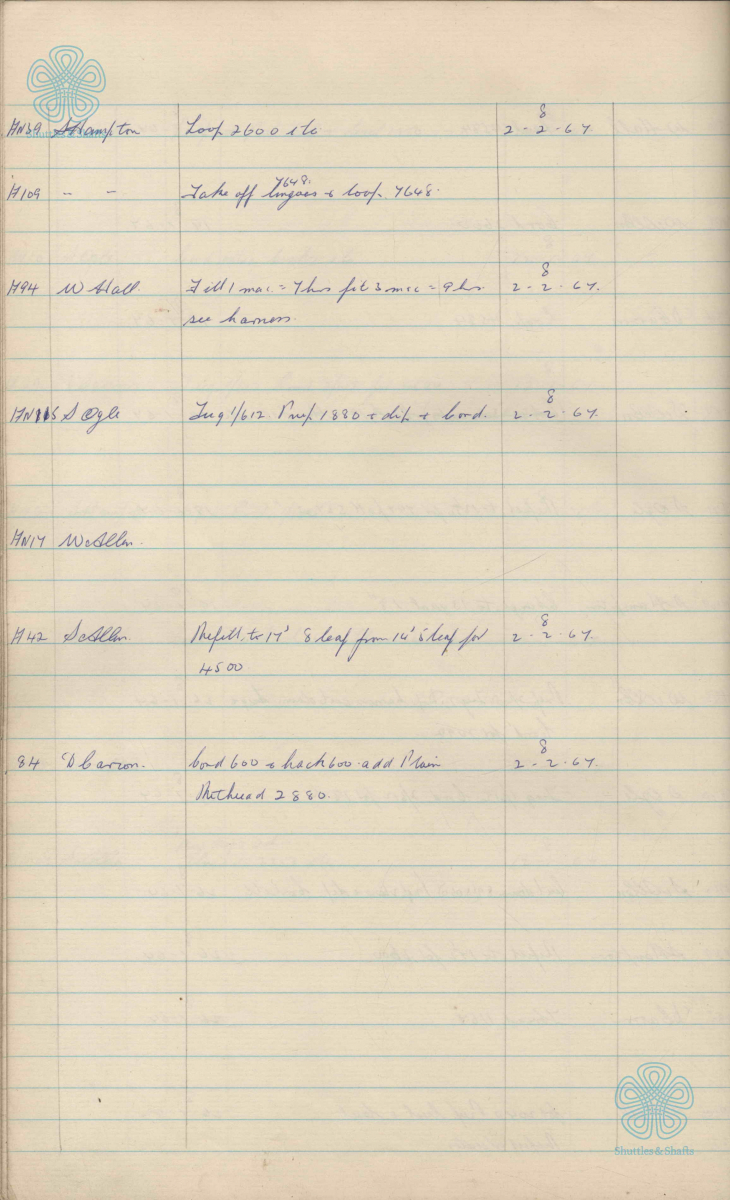 8
HN39 S Hampton Loop 2600 etc 2-2-67
7648.
H109 - - Take off lingoes & loop 7648.
8
H94 W Hall. Fill 1 mac. = 7 hrs fit 3 mac = 9 hrs. 2-2-67.
see harness.
8
S Ogle Prep 1880 & dip & cord. 2-2-67.
HN17 W Allen.
8
H42 S Allen. Refill to 17' 8 leaf from 14' 5 leaf for 2-2-67.
4500
8
84 D Carson. cord 600 & hack 600 add Plain 2-2-67.
Rethread 2880.
Shuttles & Shafts